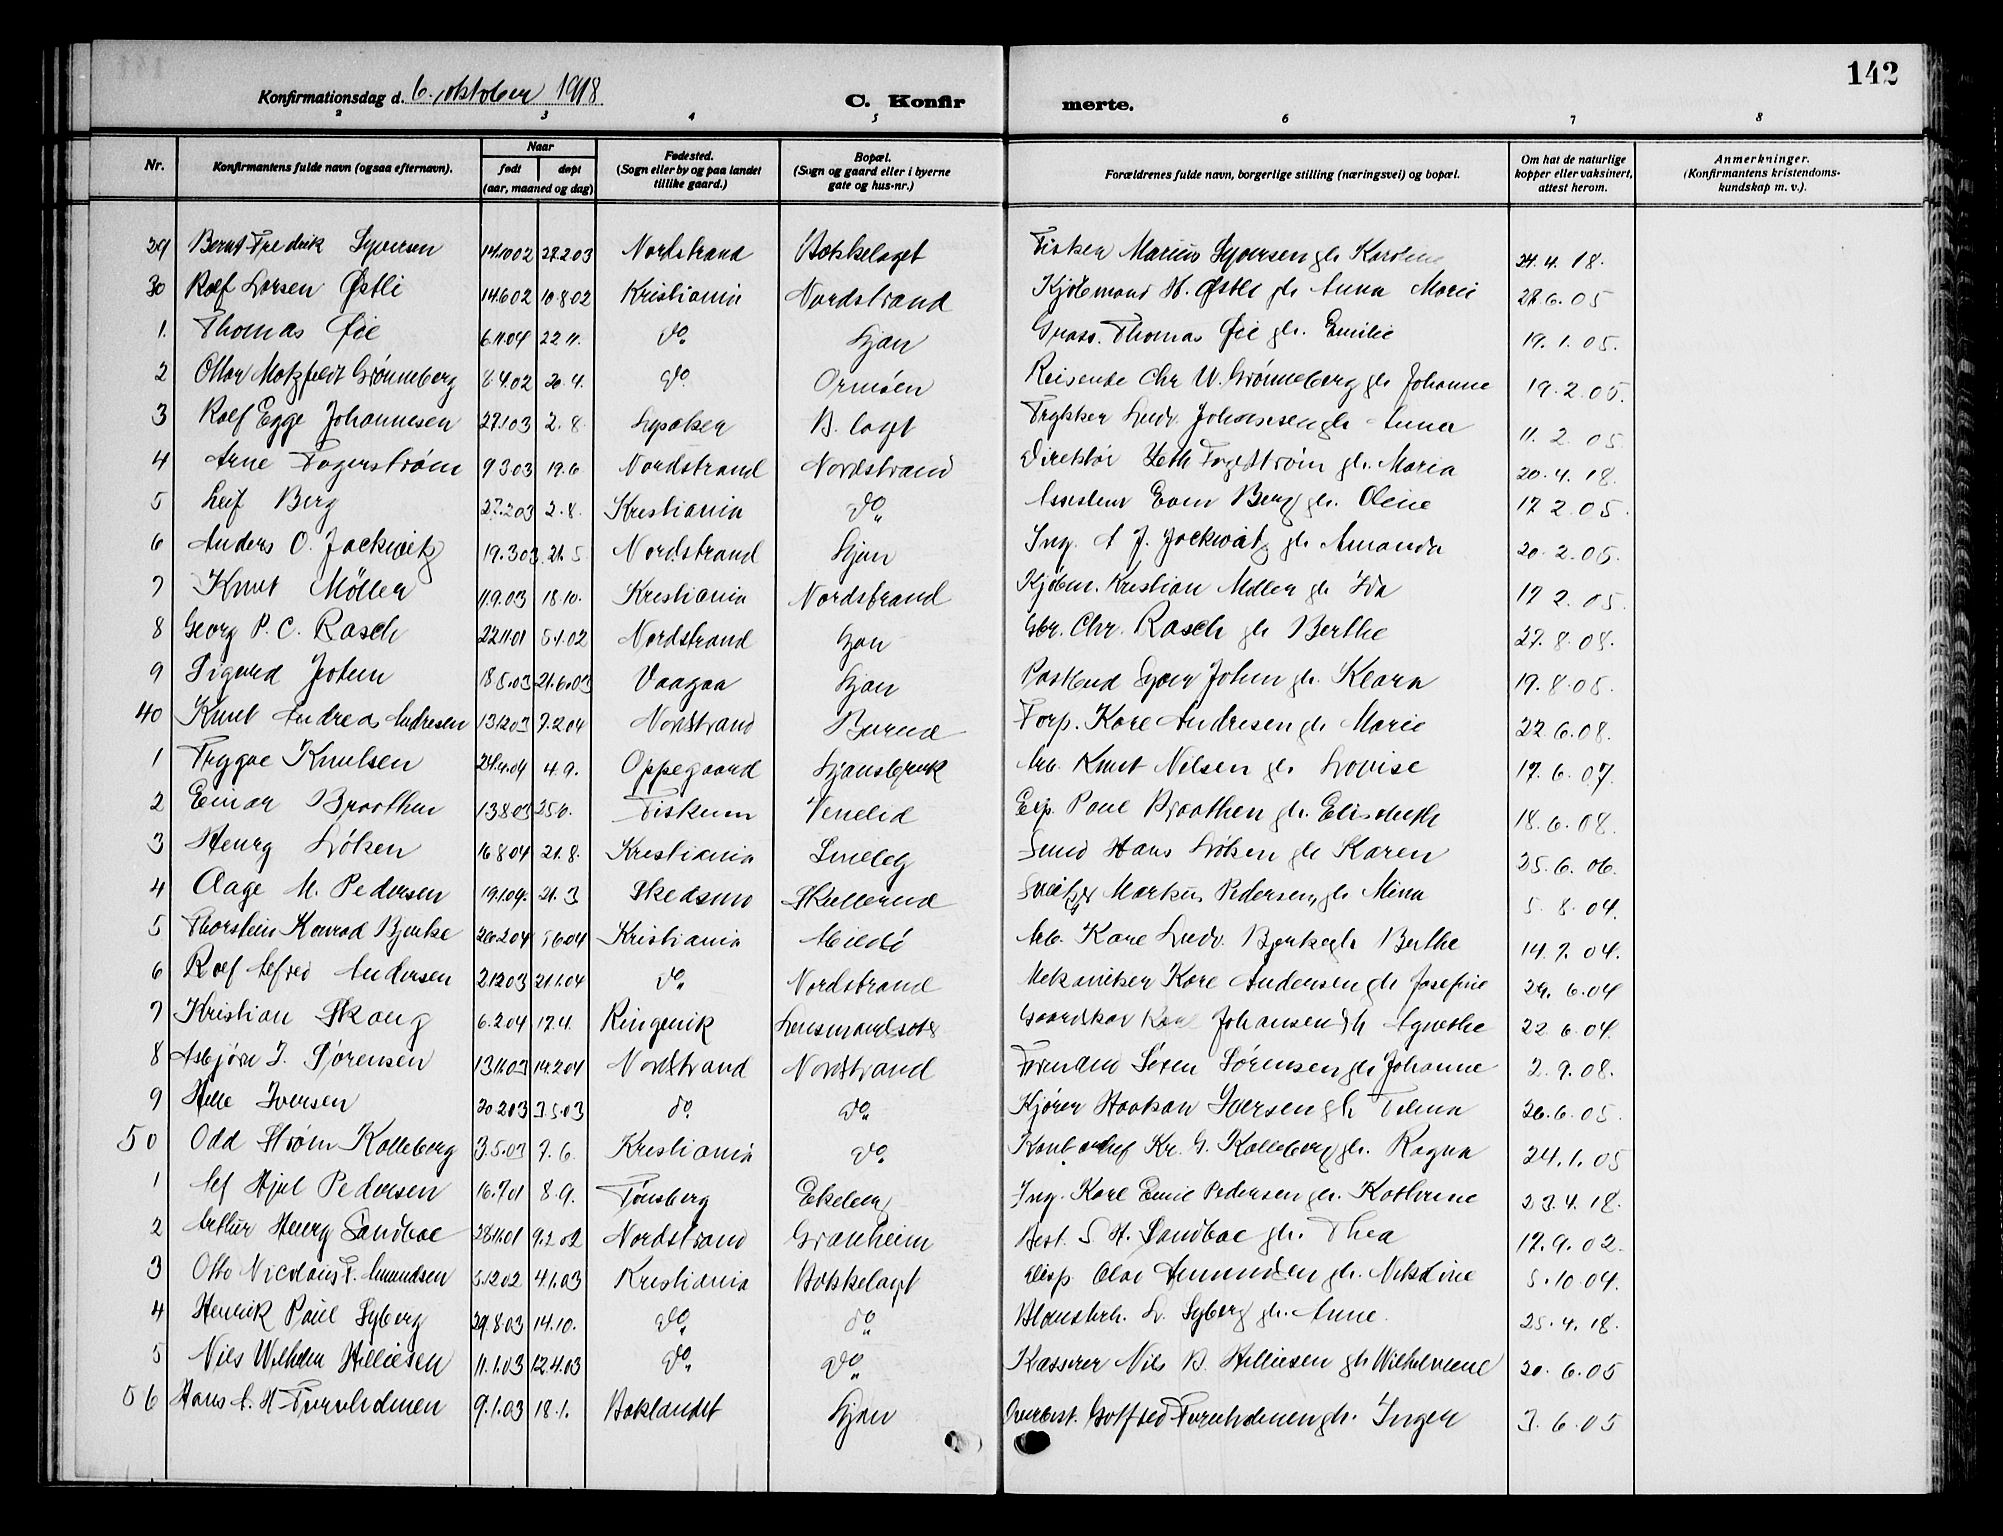 142
Konfirmationsdag d. 6. oktober 1918
C. Konfir
merte.
2 3 4 5 6 7 8
Nr. Konfirmantens fulde navn (ogsaa efternavn). Naar født døpt (aar, maaned og dag) Fødested. (Sogn eller by og paa landet tillike gaard.) Bopæl. (Sogn og gaard eller i byerne gate og hus-nr.) Forældrenes fulde navn, borgerlige stilling (næringsvei) og bopæl. Om hat de naturlige kopper eller vaksinert, attest herom. Anmerkninger. (Konfirmantens kristendoms-kundskap m. v.).
29 Bernt Fredrik Syversen 14.10.02 22.2.03 Nordstrand Bækkelaget Fisker Marius Syversen gh. 24.4.18.
30 Rolf Larsen Østli 14.6.02 10.8.02 Kristiania Nordstrand Kjøbmand H. Østli gh. Anna Marie 28.6.05
1. Thomas Øie 6.11.04 22.11. do. Ljan Gross. Thomas Øie gh. Emilie 19.1.05.
2 Ottar Motzfeldt Grønneberg 8.4.02 20.4. do. Ormøen Reisende Chr. W. Grønneberg gh. Johanne 19.2.05.
3 Rolf Egge Johannesen 27.1.03 2.8. Lysaker B. laget Trykker Ludv. Johannesen gh. Anna 11.2.05
4 Arne Fagerstrøm 9.3.03 19.6 Nordstrand Nordstrand Direktør Seth Fagerstrøm gh. Maria 20.4.18.
5 Leif Berg 27.2.03 2.8. Kristiania do. Even Berg gh. Oline 17.2.05.
6 Anders O. Jackwitz 19.3.03 21.5 Nordstrand Ljan Ing. A. J. Jackwitz gh. Amanda 20.2.05.
7 Knut Möller 11.9.03 18.10. Kristiania Nordstrand Kjøbm. Kristian Möller gh. Ida 17.2.05.
8 Georg P. C. Rasch 22.11.01 5.1.02 Nordstrand Ljan Gbr. Chr. Rasch gh. Berthe 27.8.08.
9 Sigurd 18.5.03 21.6.03 Vaagaa Ljan Postbud gh. Klara 19.8.05.
40 Knut Andreas Andresen 13.12.03 7.2.04 Nordstrand Forp. Karl Andresen gh. Marie 22.6.08.
1 Trygve Knutsen 24.4.04 4.9. Oppegaard Ljansbruk Arb. Knut Nilsen gh. Lovise 17.6.07.
2 Einar Braathen 13.8.03 25.0. Fiskum Venelid Exp. Paul Braathen gh. Elisabeth 18.6.08.
3 Henry Løken 16.8.04 21.8. Kristiania Smed Hans Løken gh. Karen 25.6.06.
4 Aage M. Pedersen 19.1.04. 21.3 Skedsmo Skullerud Markus Pedersen, gh. Mina 5.8.04.
5 Thorstein Konrad Bjerke 26.2.04 5.6.04 Kristiania Arb. Karl Ludv. Bjerke gh. Berthe 14.7.04.
6 Rolf Alfred Andersen 2.12.03 21.1.04 do. Nordstrand Mekaniker Karl Andersen gh. Josefine 29.6.04
7 Kristian Skaug 6.2.04 17.4. Ringerik Gaardskar Karl Johansen gh. Agnethe 22.6.04.
8 Asbjørn J. Sørensen 13.11.03 14.2.04 Nordstrand Nordstrand Formand Søren Sørensen gh. Johanne 2.9.08.
9 Helle Iversen 20.2.03 3.5.03 do. do. Kjører Haakon Iversen gh. 26.6.05.
50 Odd Strøm Kolleberg 3.5.03 7.6. Kristiania do. Kontorchef Kr. G. Kolleberg gh. Ragna 24.1.05
1 Alf Hjal Pedersen 16.7.01 8.9. Tønsberg Ing. Karl Emil Pedersen gh. Kathrine 23.4.18.
2 Arthur Henry Sandboe 28.11.01 9.2.02 Nordstrand Granheim Best. S. H. Sandboe gh. Thea 17.9.02.
3 Otto Nicolaus F. Amundsen 5.12.02 4.1.03 Kristiania Bækkelaget Olav Amundsen gh. 5.10.04.
4 Henrik Paul Syberg 29.8.03 14.10. do. do. L. Syberg gh. Anne. 25.4.18.
5 Nils Wilhelm Hilliesen 11.1.03 12.4.03 do. do. Kasserer Nils B. Hilliesen gh. Wilhelmine 20.6.05
56 Hans A. H. Furuholmen 9.1.03 18.1. Bæklandet Ljan Overbest. Gotfred Furuholmen gh. Inga 3.6.05